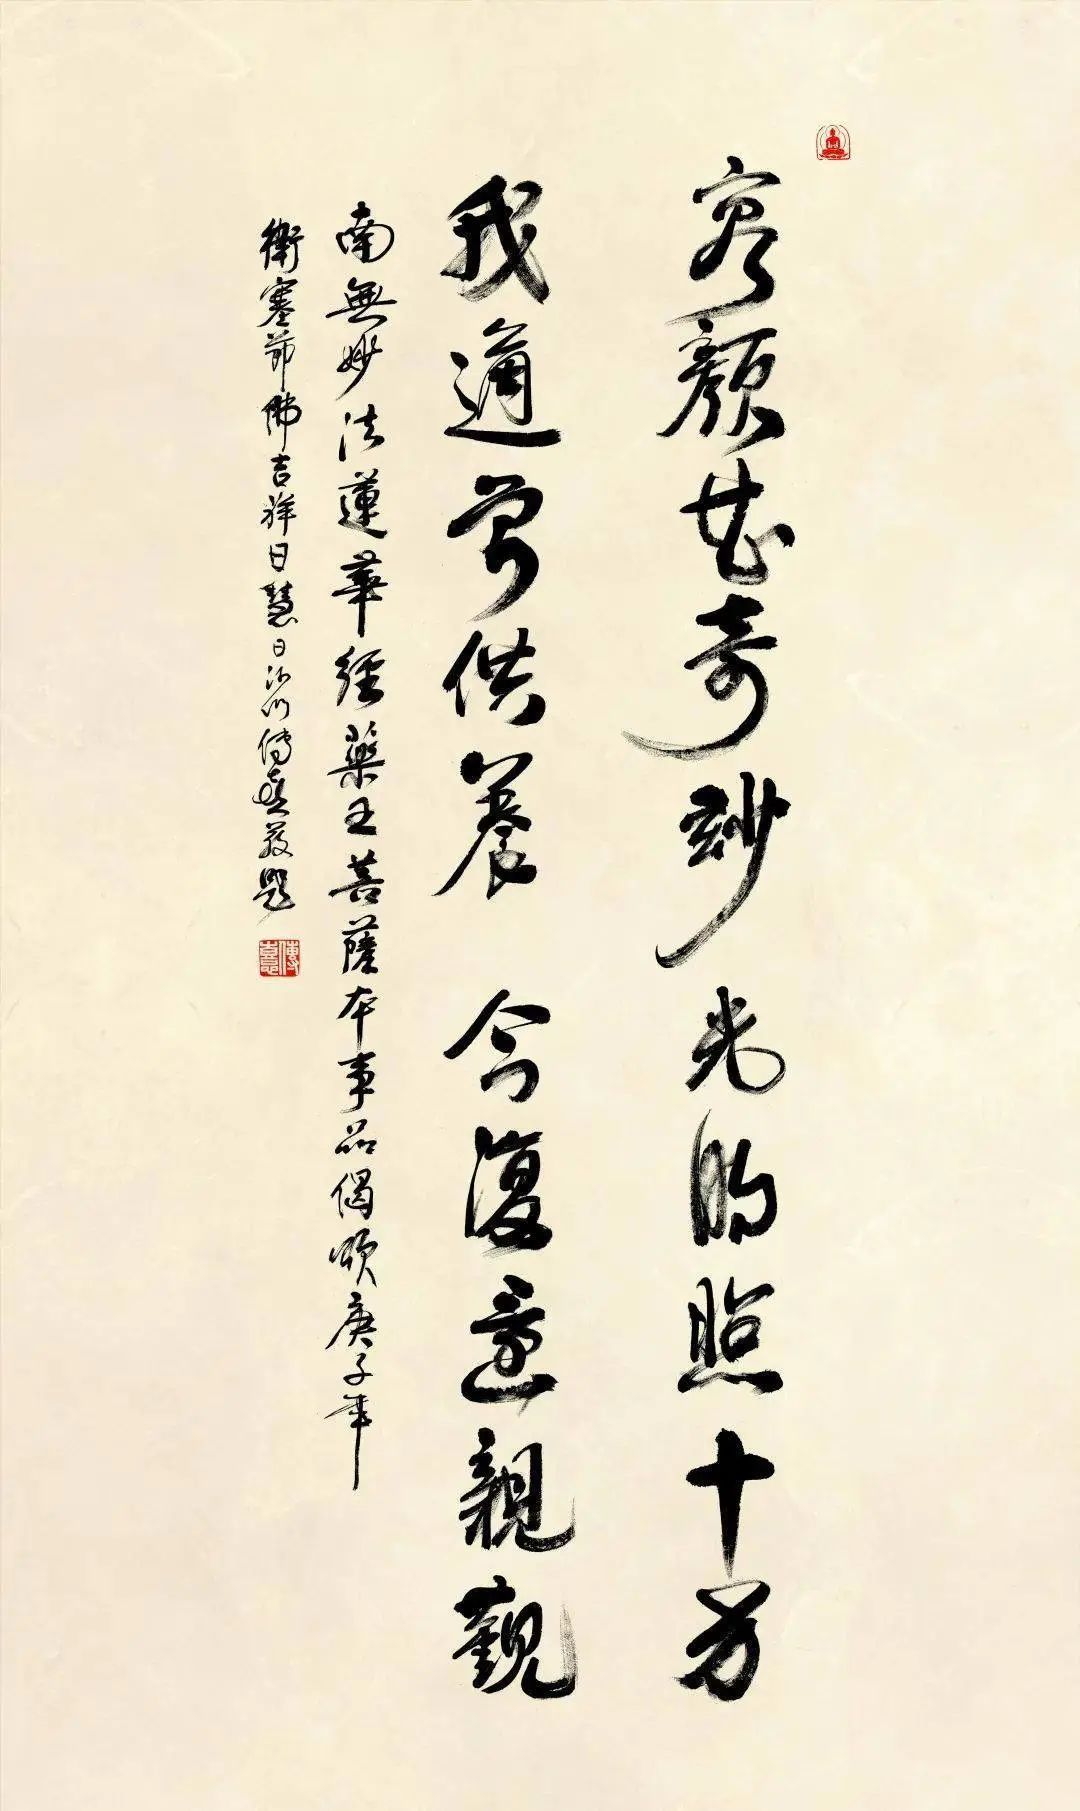 容顏甚奇妙 光明照十方
我適曾供養 今復還親覲
南無妙法蓮華經藥王菩薩本事品偈頌庚子年
衛塞節佛吉祥日慧日沙門傳喜敬題
傳喜